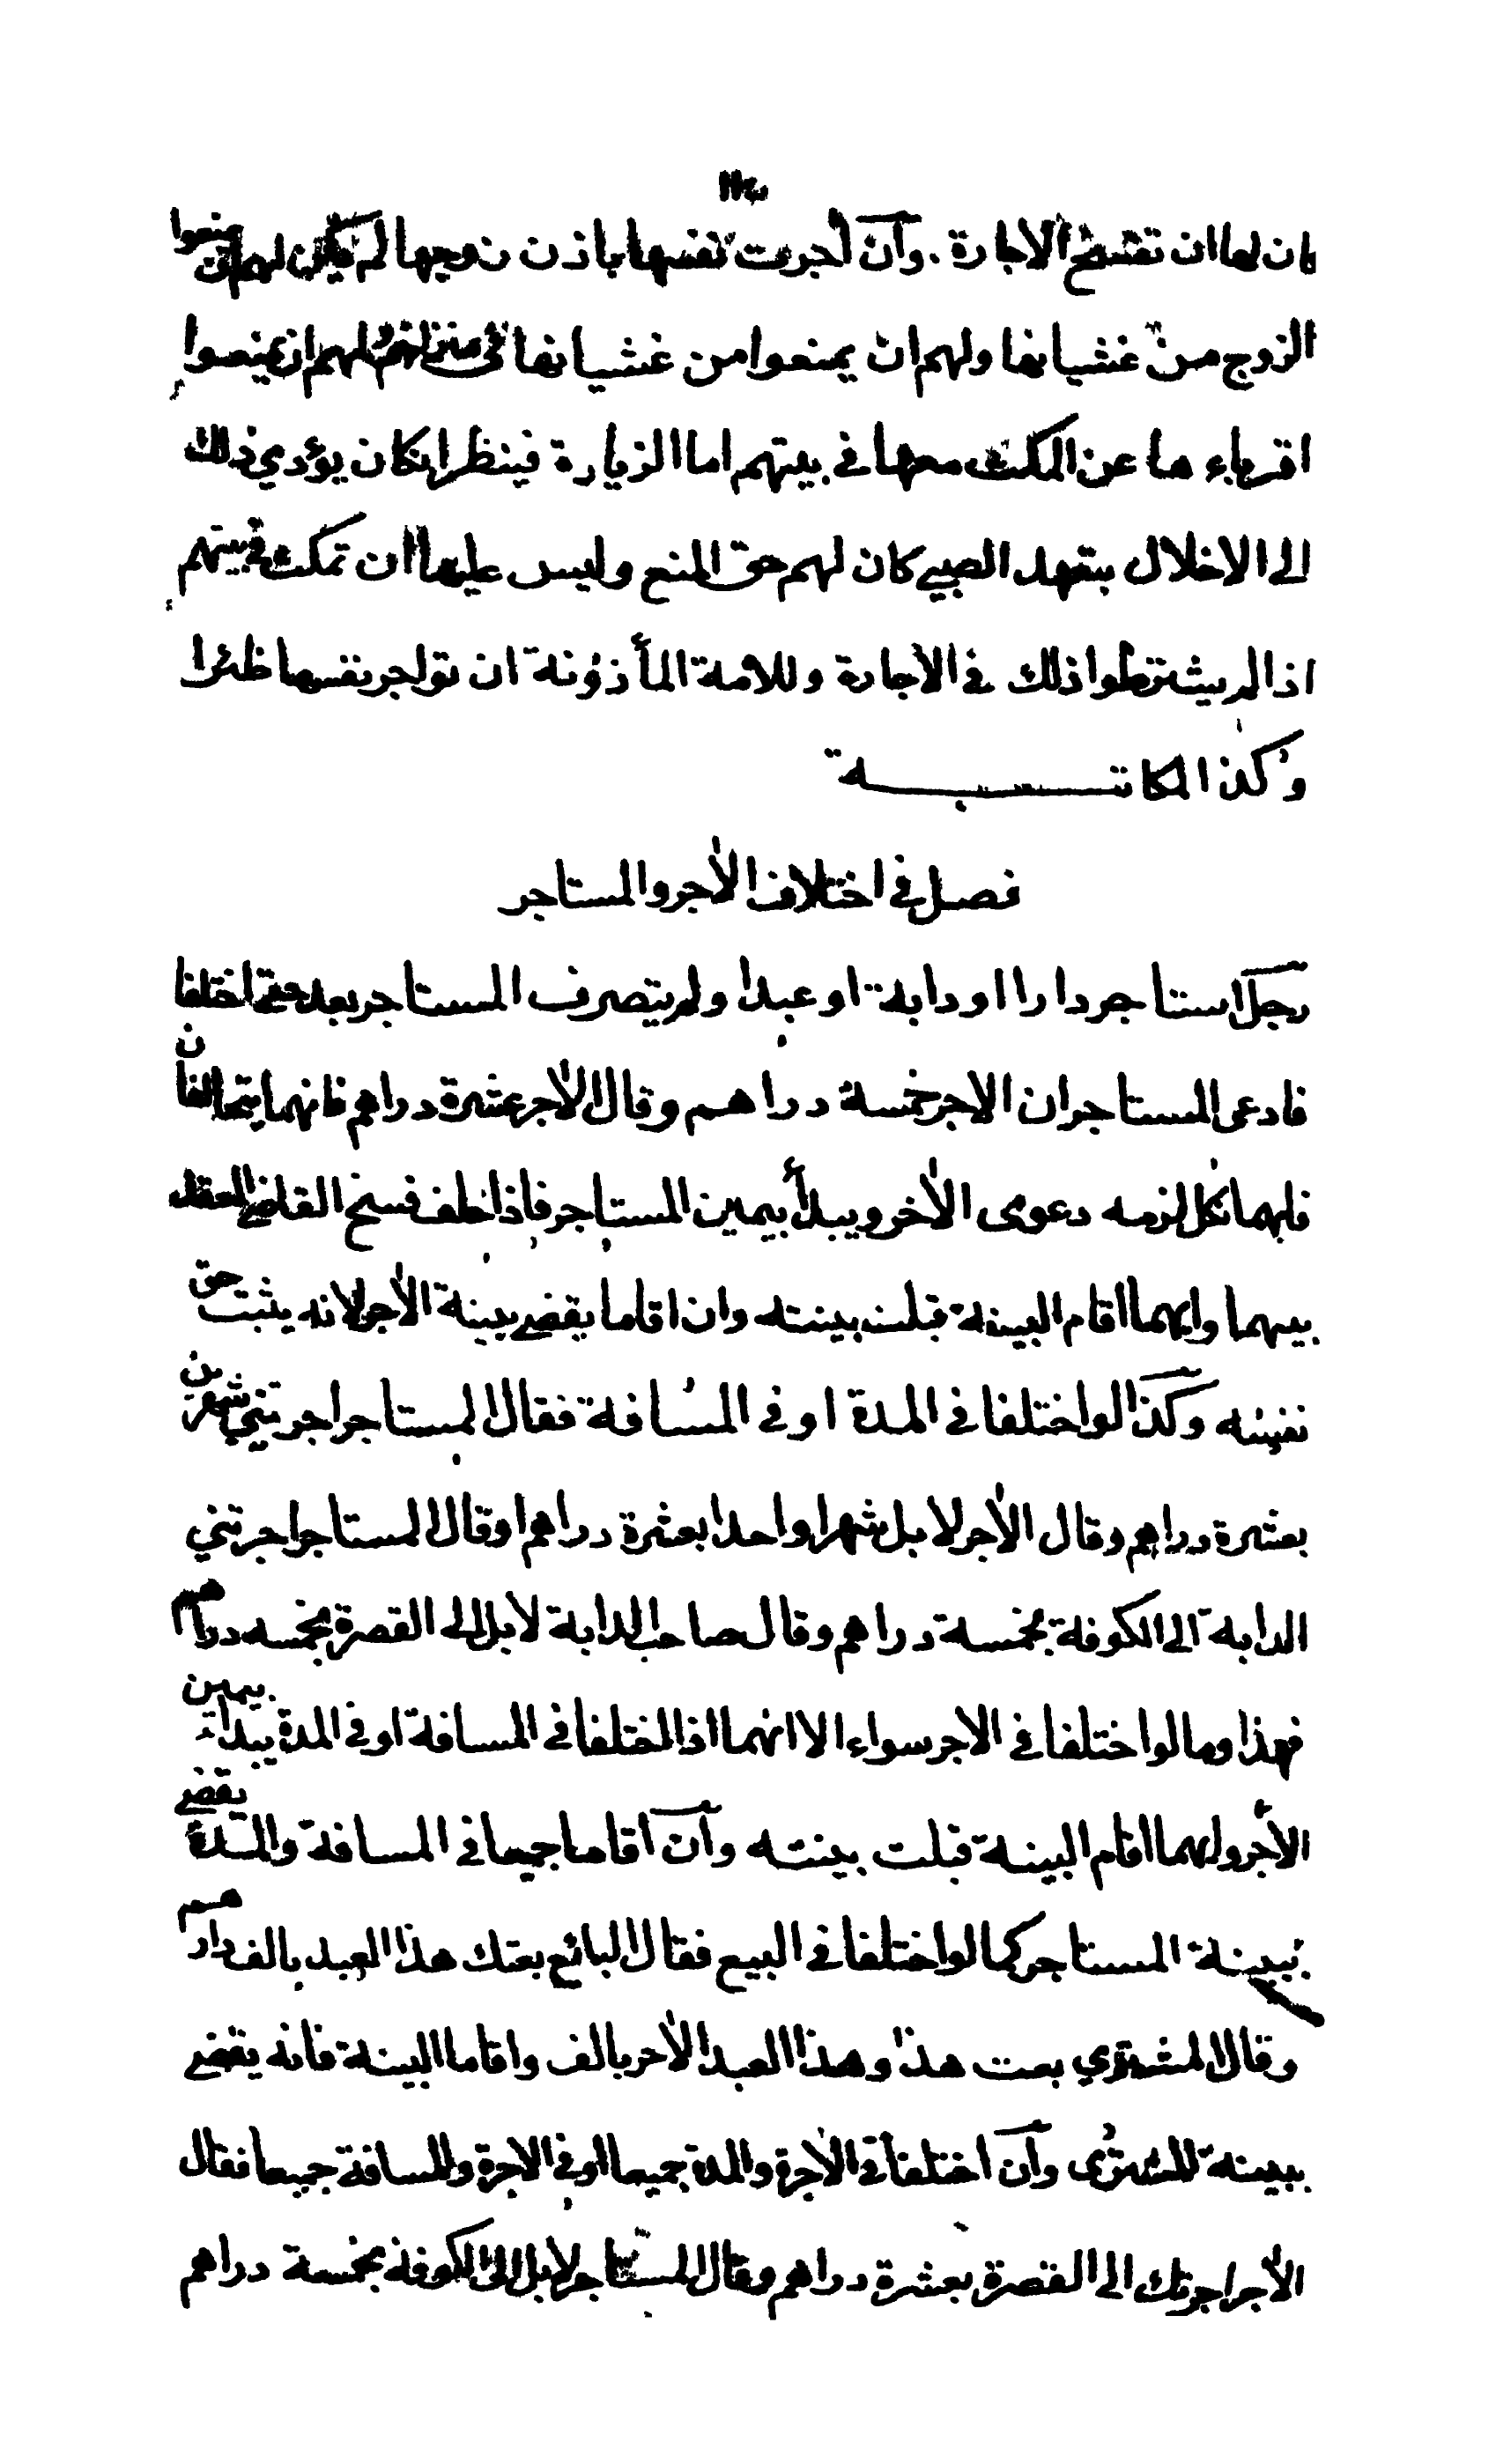 كان لها ان تفسخ الاجارة . وان اجرت نفسها باذن زوجها لم يكن لهم ان يمنعوا
الزوج من غشيانها ولهم ان يمنعوا من غشيانها في منزلهم ولهم ان يمنعوا
اقرباء ها عن المكث معها في بيتهم اما الزيارة فينظر ان كان يؤدي ذلك
الى الاخلال بتعهد الصبي كان لهم حق المنع وليس عليها ان تمكث في بيتهم
اذا لم يشترطوا ذلك في الاجارة وللامة المأذونة ان تواجر نفسها ظئرا
وكذا المكاتبة
فصل في اختلاف الآجر والمستاجر
رجل استاجر دارا او دابة او عبدا ولم يتصرف المستاجر بعد حتى اختلفا
فادعى المستاجر ان الاجر خمسة دراهم وقال الآجر عشرة دراهم فانهما يتحالفان
فايهما نكل لزمه دعوى الآخر ويبدأ بيمين المستاجر فاذا حلف فسخ القاضي العقد
بينهما وايهما اقام البينة قبلت بينته وان اقاما يقضي ببينة الآجر لانه يثبت حق
نفسه وكذا لو اختلفا في المدة او في المسافة فقال المستاجر اجرتني شهرين
بعشرة دراهم وقال الآجر لا بل شهرا واحدا بعشرة دراهم او قال المستاجر اجرتني
الدابة الى الكوفة بخمسة دراهم وقال صاحب الدابة لا بل الى القصرة بخمسه دراهم
فهذا وما لو اختلفا في الاجر سواء الا انهما اذا اختلفا في المسافة او في المدة يبدأ بيمين
الآجر وايهما اقام البينة قبلت بينته وان اقاما جميعا في المسافة والمدة يقضى
ببينة المستاجر كما لو اختلفا في البيع فقال البائع بعتك هذا العبد بالف درهم
وقال المشتري بعت هذا وهذا العبد الآخر بالف واقاما البينة فانه يقضي
ببينة المشترى وان اختلفا في الاجرة والمدة جميعا او في الاجرة والمسافة جميعا فقال
الآجر اجرتك الى القصرة بعشرة دراهم وقال المستاجر لا بل الى الكوفة بخمسة دراهم